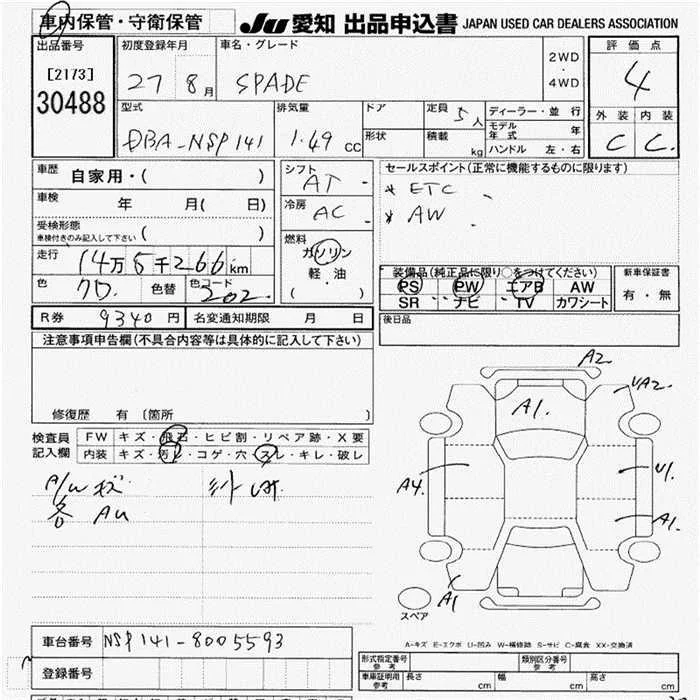 車内保管・守衛保管 JU 愛知 出品申込書 JAPAN USED CAR DEALERS ASSOCIATION
出品番号 初度登録年月 車名・グレード 2WD・4WD 評価点
[2173] 27 8月 SPADE 4
30488 外装 内装
型式 排気量 ドア 定員 5人 ディーラー・並行
DBA-NSP141 1.49 CC 形状 積載 kg モデル年式 年 C C
ハンドル 左・右
車歴 自家用・( ) シフト AT セールスポイント(正常に機能するものに限ります)
車検 年 月( 日) 冷房 AC * ETC
受検形態 * AW
車検付きのみ記入して下さい ( ) 燃料 ガソリン
走行 14万5千266km 軽・油 装備品(純正品に限り○をつけてください) 新車保証書
色 クロ 色替 色コード 202 ( ) PS PW エアB AW 有・無
SR ナビ TV カワシート
R券 9340円 名変通知期限 月 日 後日品
注意事項申告欄(不具合内容等は具体的に記入して下さい)
修復歴 有 〔箇所 〕
検査員 FW キズ・飛石・ヒビ割・リペア跡・X要
記入欄 内装 キズ・汚レ・コゲ・穴・スレ・キレ・破レ
A/W キズ
各 AU
A2
UA2
A1.
A4.
U1
A1.
A1
スペア
A-キズ E-エクボ U-凹み W-補修跡 S-サビ C-腐食 XX-交換済
車台番号 NSP141-8005593
登録番号
形式指定番号 参考 類別区分番号 参考
車庫証明用 参考 長さ cm 幅 cm 高さ cm